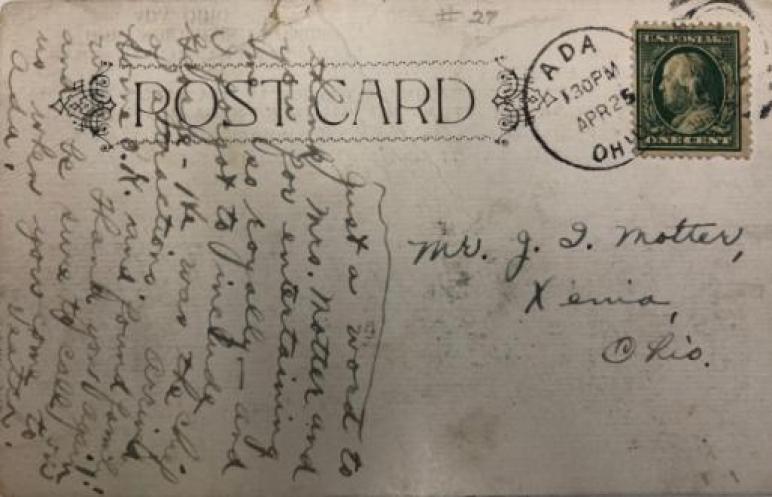 # 27
POST CARD
ADA
130PM
APR 25
OHIO
U.S. POSTAGE
ONE CENT
Mr. J. I. Motter,
Xenia,
Ohio.
Just a word to
Mrs. Motter and
you for entertaining
me so royally – and
I forgot to include
– He was the
attractions.
home O.K. and found
Thank you again
and be sure to call on
us when you come to
Ada.